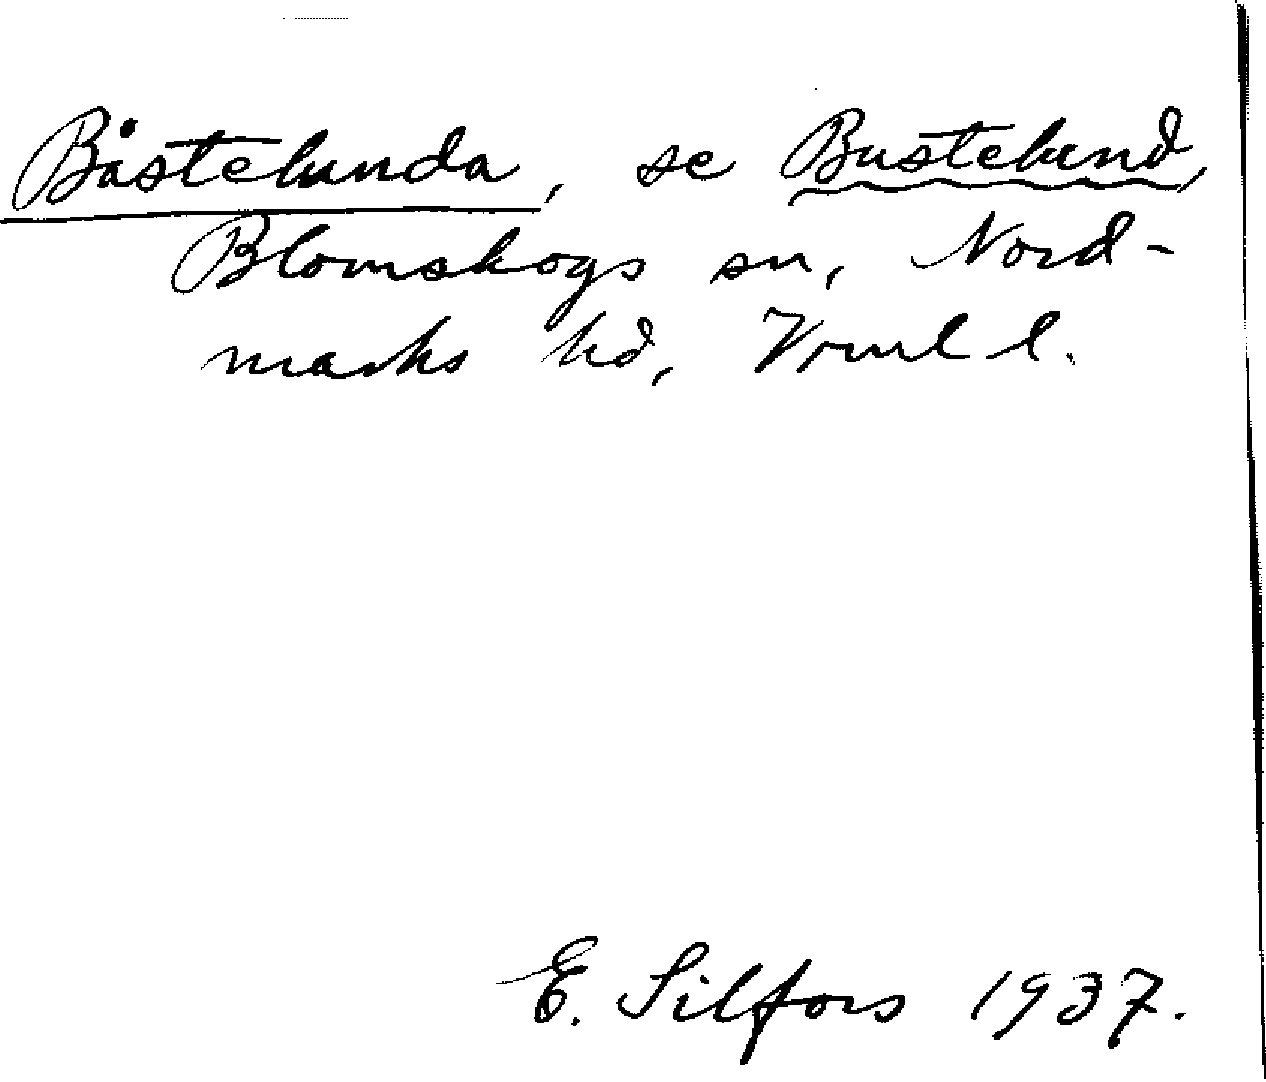 Båstelunda, se Bustelund,
Blomskogs sn, Nord-
marks hd, Vrml l.
E. Silfors 1937.